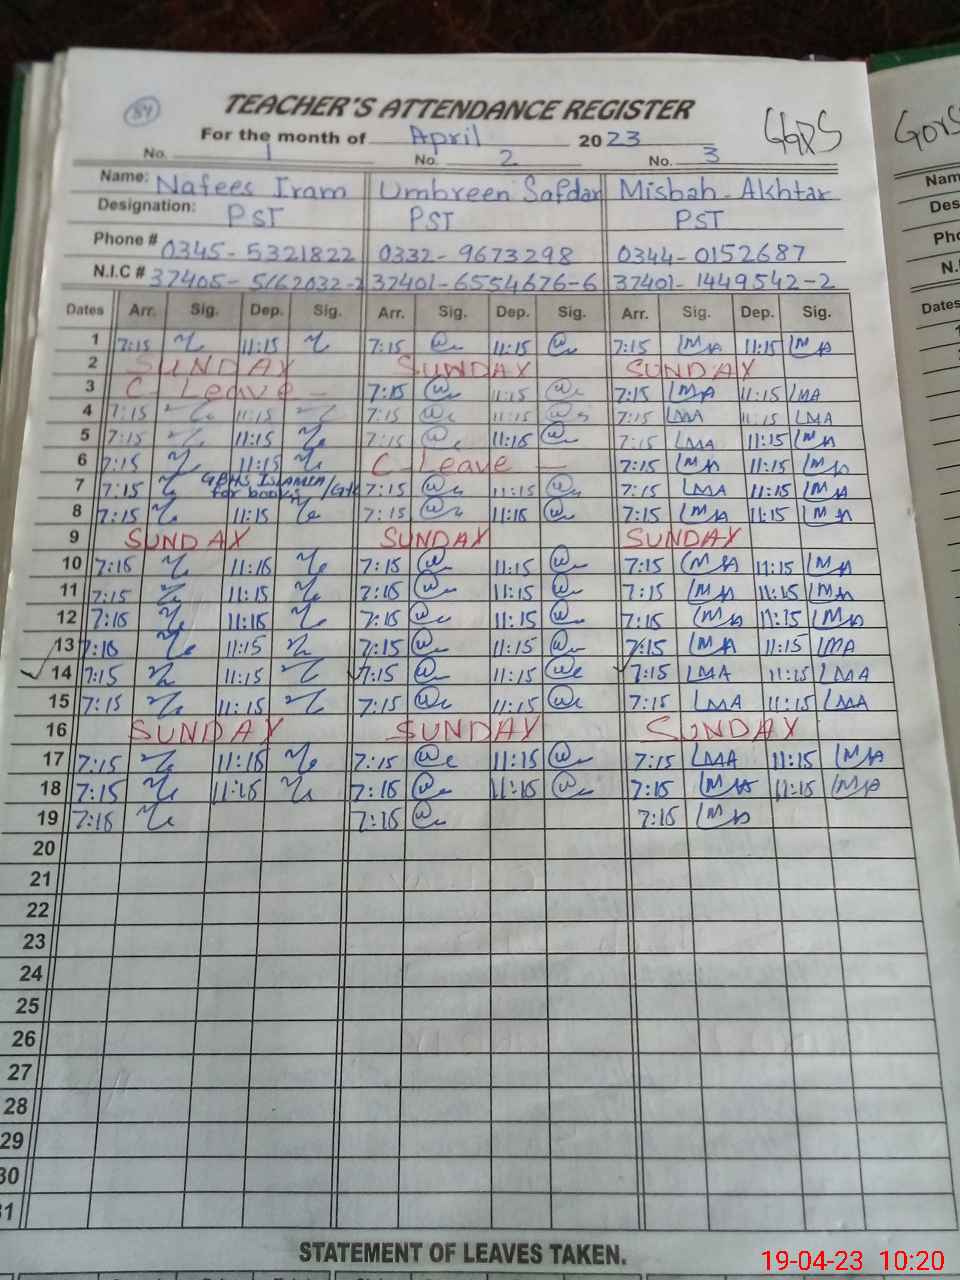 54
TEACHER'S ATTENDANCE REGISTER
GGPS
For the month of April 2023
No. 1 No. 2 No. 3
Name: Nafees Iram Umbreen Safdar Misbah Akhtar
Designation: PST PST PST
Phone # 0345-5321822 0332-9673298 0344-0152687
N.I.C # 37405-5162032-2 37401-6554676-6 37401-1449542-2
Dates Arr. Sig. Dep. Sig. Arr. Sig. Dep. Sig. Arr. Sig. Dep. Sig.
1 7:15 11:15 7:15 11:15 7:15 LMA 11:15 LMA
2 SUNDAY SUNDAY SUNDAY
3 C-Leave - 7:15 11:15 7:15 LMA 11:15 LMA
4 7:15 11:15 7:15 11:15 7:15 LMA 11:15 LMA
5 7:15 11:15 7:15 11:15 7:15 LMA 11:15 LMA
6 7:15 11:15 C-Leave - 7:15 LMA 11:15 LMA
7 7:15 for books 7:15 11:15 7:15 LMA 11:15 LMA
8 7:15 11:15 7:15 11:15 7:15 LMA 11:15 LMA
9 SUNDAY SUNDAY SUNDAY
10 7:15 11:15 7:15 11:15 7:15 LMA 11:15 LMA
11 7:15 11:15 7:15 11:15 7:15 LMA 11:15 LMA
12 7:15 11:15 7:15 11:15 7:15 LMA 11:15 LMA
13 7:15 11:15 7:15 11:15 7:15 LMA 11:15 LMA
14 7:15 11:15 7:15 11:15 7:15 LMA 11:15 LMA
15 7:15 11:15 7:15 11:15 7:15 LMA 11:15 LMA
16 SUNDAY SUNDAY SUNDAY
17 7:15 11:15 7:15 11:15 7:15 LMA 11:15 LMA
18 7:15 11:15 7:15 11:15 7:15 LMA 11:15 LMA
19 7:15 7:15 7:15 LMA
20
21
22
23
24
25
26
27
28
29
30
31
STATEMENT OF LEAVES TAKEN.
19-04-23 10:20